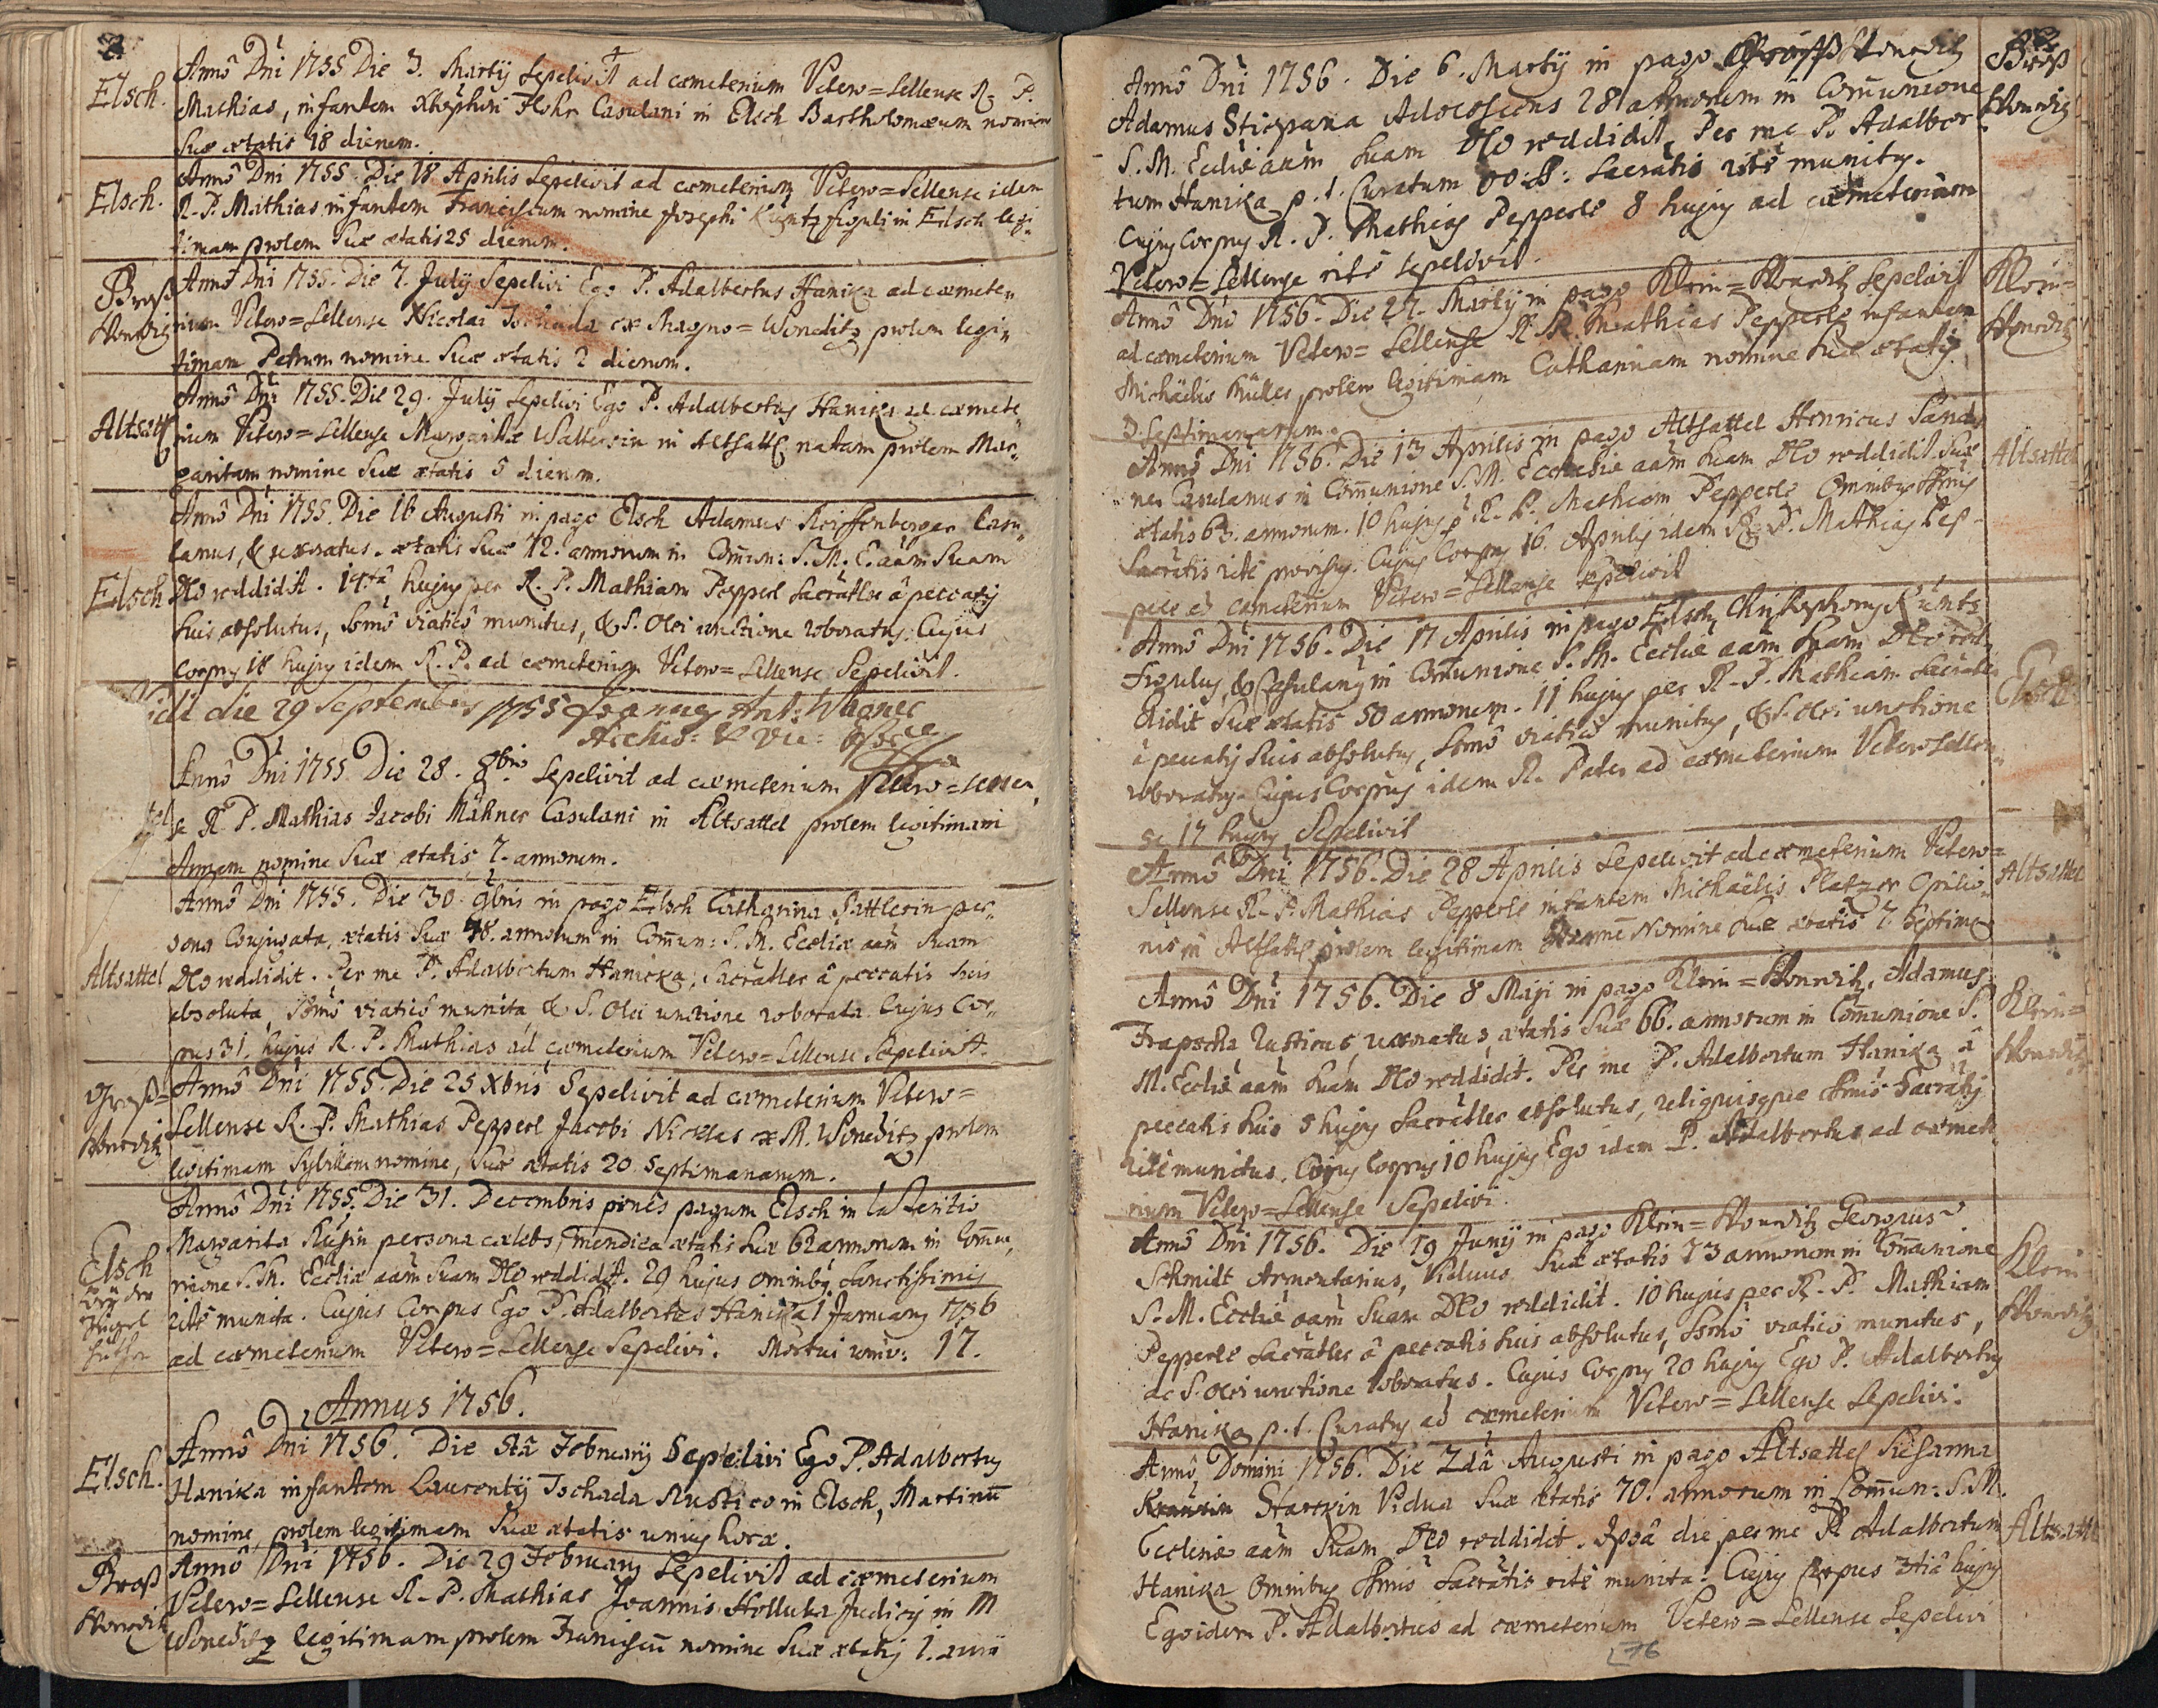 2
Elsch.
Anno Dni 1755 Die 3. Martij Sepelivit ad cæmeterium Vetero=Sellense R. P.
Mathias, infantem Xstophori Flohr Casulani in Elsch Bartholomæum nomine
suæ ætatis 18 dierum.
Elsch.
Anno Dni 1755. Die 18 Aprilis Sepelivit ad cæmeterium Vetero=Sellense idem
R. P. Mathias infantem Franciscum nomine Josephi Küntz figuli in Elsch legi-
timam prolem suæ ætatis 25 dierum.
Groß
Wonediz
Anno Dni 1755. Die 7. July Sepelivi Ego P. Adalbertus Hanika ad cæmete,,
rium Vetero=Sellense Nicolai Tschada ex Magno=Woneditz prolem legi,,
timam Petrum nomine suæ ætatis 2 dierum.
Altsattl
Anno Dni 1755. Die 29. July Sepelivi Ego P. Adalbertus Hanika ad cæmete
rium Vetero=Sellense Margarithæ Walterin in Altsattl natam prolem Mar,,
garitam nomine suæ ætatis 5 dierum.
Elsch
Anno Dni 1755. Die 16 Augusti in pago Elsch Adamus Reiffenberger Casu,,
lanus, & uxoratus. ætatis suæ 72. annorum in Comun: S. M. E. aam suam
Deo reddidit. 14ta hujus per R. P. Mathiam Pepperl Sacratlr a peccatis
suis absolutus, Ssmo viatico munitus, & S. Olei unctione roboratus: Cujus
Corpus 18 hujus idem R. P. ad cæmeterium Vetero=Sellense Sepelivit.
Vidi die 29 Septembris 1755 Joannes Ant: Wagner
Archid: & Vic:
tel
Anno Dni 1755. Die 28. 8bris Sepelivit ad cæmeterium Vetero=Sellen,
se R. P. Mathias Jacobi Mähner Casulani in Altsattel prolem legitimam
Annam nomine suæ ætatis 7. annorum.
Altsattel
Anno Dni 1755. Die 30. 9bris in pago Elsch Catharina Sattlerin per,,
sona Conjugata, ætatis suæ 48. annorum in Comun: S. M. Eccliæ aam suam
Deo reddidit. Per me P. Adalbertum Hanicka; Sacratlr a peccatis suis
absoluta, Ssmo viatico munita & S. Olei unctione roborata. Cujus Cor,,
pus 31. hujus R. P. Mathias ad cæmeterium Vetero=Sellense Sepelivit.
Groß=
Wonediz
Anno Dni 1755. Die 25 Xbris Sepelivit ad cæmeterium Vetero=
Sellense R. P. Mathias Pepperl Jacobi Nickles ex M. Woneditz prolem
legitimam Sybillam nomine, suæ ætatis 20 Septimanarum.
Elsch
bey der
Ziegel
hütten
Anno Dni 1755. Die 31. Decembris penes pagum Elsch in lateritio
Margarita persona cælebs, mendica ætatis suæ 62 annorum in Comu,
nione S. M. Eccliæ aam suam Deo reddidit. 29 hujus omnibus sanctissimis
rite munita. Cujus Corpus Ego P. Adalbertus Hanika 1 January 1756
ad cæmeterium Vetero=Sellense Sepelivi. Mortui univ: 17.
Annus 1756.
Elsch.
Anno Dni 1756. Die 8ta February Sepelivi Ego P. Adalbertus
Hanika infantem Laurentij Tschada Rustico in Elsch, Martinu
nomine, prolem legitimam suæ ætatis unius horæ.
Groß
Wonediz
Anno Dni 1756. Die 29 February Sepelivit ad cæmeterium
Vetero=Sellense R. P. Mathias Joannis Holluba Judicis in M
Woneditz legitimam prolem Franciscu nomine suæ ætatis 1. anni
Anno Dni 1756. Die 6. Martij in pago Großwonediz
Adamus Stiepana Adolescens 28 annorum in Comunione
S. M. Eccliæ aam suam Deo reddidit, Per me P. Adalber
tum Hanika p. t. Curatum Sacratis rite munitus.
Cujus Corpus R. P. Mathias Pepperl 8 hujus ad cæmeterium
Vetero=Sellense rite sepelivit.
Groß
Wonediz
Anno Dni 1756. Die 27. Martij in pago Klein=Wonediz Sepelivit
ad cæmeterium Vetero=Sellense R. P. Mathias Pepperl infantem
Michäelis Müller prolem legitimam Catharinam nomine suæ ætatis
3 Septimanarum.
Klein=
Wonediz
Anno Dni 1756. Die 13 Aprilis in pago Altsattel Henricus Sand
ner Casulanus in Comunione S. M. Ecclesiæ aam suam Deo reddidit. suæ
ætatis 63. annorum. 10 hujus p R. P. Mathiam Pepperl Omnibus Ssmis
Sacratis rite provisus. Cujus Corpus 16. Aprilis idem R. P. Mathias Pep-
perl ad cæmeterium Vetero=Sellense sepelivit
Altsattel
Anno Dni 1756. Die 17 Aprilis in pago Elsch Christophorus Küntz
Figulus, & Casulanus in Comunione S. M. Eccliæ aam suam Deo red
didit suæ ætatis 50 annorum. 11 hujus per R. P. Mathiam Sacratlr
a peccatis suis absolutus, Ssmo viatico munitus, & S. Olei unctione
roboratus. Cujus Corpus idem R. Pater ad cæmeterium Vetero Sellen,,
se 17 hujus Sepelivit
Elsch
Anno Dni 1756. Die 28 Aprilis Sepelivit ad cæmeterium Vetero=
Sellense R. P. Mathias Pepperl infantem Michäelis Platzer Opilio,,
nis in Altsattl prolem legitimam Nomine suæ ætatis 7. Septima
Altsattel
Anno Dni 1756. Die 8 Maji in pago Klein=Wonediz, Adamus
Frapscha Rusticus, uxoratus, ætatis suæ 66. annorum in Comunione S.
M. Eccliæ aam suam Deo reddidit. Per me P. Adalbertum Hanika a
peccatis suis 5 hujus Sacratlr absolutus, reliquisque Ssmis Sacratis
rite munitus. Cujus Corpus 10 hujus Ego idem P. Adalbertus ad cæmete,,
rium Vetero=Sellense Sepelivi.
Klein=
Wonediz
Anno Dni 1756. Die 19 Junij in pago Klein=Wonediz Georgius
Schmidt Armentarius, Viduus suæ ætatis 73 annorum in Comunione
S. M. Eccliæ aam suam Deo reddidit. 10 hujus per R. P. Mathiam
Pepperl Sacratlr a peccatis suis absolutus, Ssmo viatico munitus,
ac S. Olei unctione roboratus. Cujus Corpus 20 hujus Ego P. Adalbertus
Hanika p. t. Curatus ad cæmeterium Vetero=Sellense Sepelivi.
Klein
Wonediz
Anno Domini 1756. Die 2da Augusti in pago Altsattel Susanna
Startzin Vidua suæ ætatis 70. annorum in Comun: S. M.
Ecclesiæ aam suam Deo reddidit. Ipsa die per me P. Adalbertum
Hanika Omnibus Ssmis Sacratis rite munita. Cujus Corpus 3tia hujus
Ego idem P. Adalbertus ad cæmeterium Vetero=Sellense Sepelivi
Altsattl
76